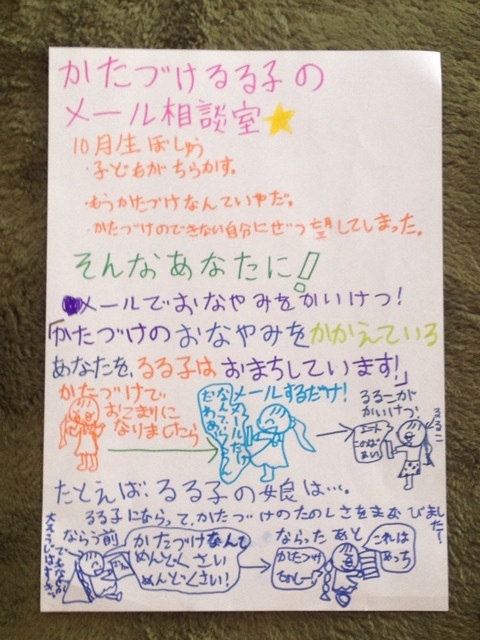 かたづけるる子の
メール相談室
10月生ぼしゅう
・子どもがちらかす。
・もうかたづけなんていやだ。
・かたづけのできない自分にぜつ望してしまった。
そんなあなたに!
メールでおなやみをかいけつ!
「かたづけのおなやみをかかえている
あなたを、るる子はおまちしています!」
かたづけで、
おこまりに
なりましたら
メールするだけ!
るるこが
かいけつ!
るるこ
たとえば、るる子の娘は…。
るる子にならって、かたづけのたのしさをまなびました!
ならう前
かたづけなんて
めんどくさい
めんどくさい!
ならったあと
かたづけ
たのしー
これは
あっち